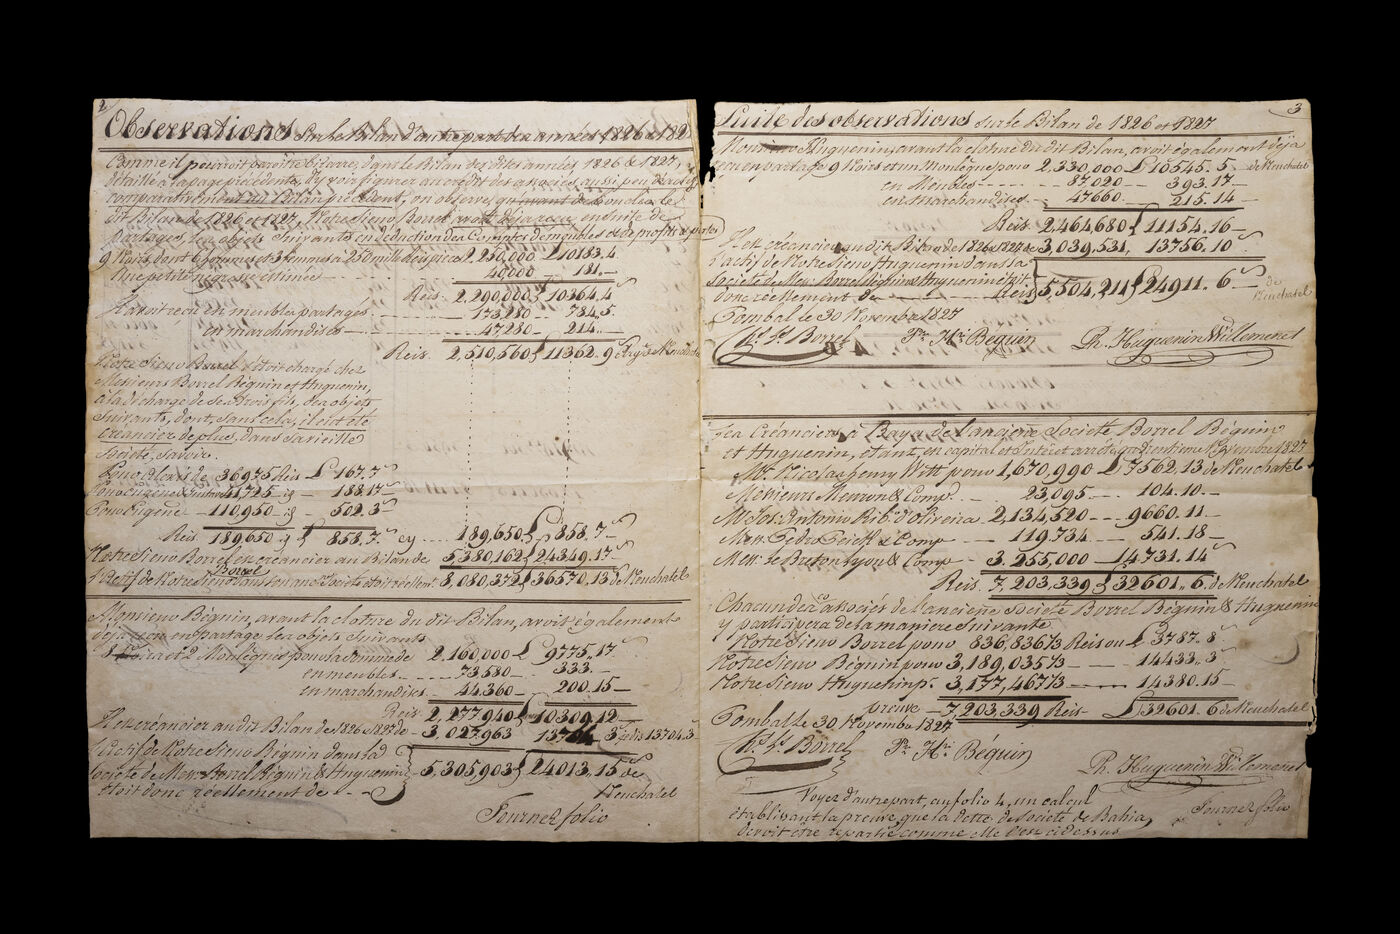 2
Observations sur le Bilan d'autre part des années 1826 & 182
Comme il pourroit paroitre bizarre, dans le Bilan des dites années 1826 & 1827,
détaillé à la page précédente, d'y voir figurer au crédit des associés aussi peu d'actif
comparativement au Bilan précédent, on observe qu'avant de boucler le
dit Bilan de 1826 et 1827, Notre Sieur Borrel avoit déja reçu ensuite de
partages, les objets suivants en déduction des Comptes de meubles et de profits & pertes
9 Noirs, dont 6 hommes et 3 femmes à 250 mille Reis pièce 2,250,000 £ 10183.4
Une petite négresse estimée 40000 181.—
Reis. 2,290,000 } 10364.4
Il avoit reçu en meubles partagés 173280 — 784.5
en marchandises — 47280 — 214 —
Reis. 2,510,560 } 11362. 9
Notre Sieur Borrel s'étoit chargé chez
Messieurs Borrel Béguin et Huguenin,
à la décharge de ses trois fils, des objets
suivants, dont, sans cela, il eut été
créancier de plus, dans sa vieille
Société, Savoir.
Pour Alexis de 36975 Reis £ 167.7
41,725 188.17
Pour Eugène — 110,950 — 502.3
Reis 189,650 £ 858.7 cy .... 189,650 £ 858.7
Notre Sieur Borrel est créancier au Bilan de 5,380,162 £ 24349.17
L'actif de Notre Sieur Borrel dans son anc.e Société étoit réellem.t 8,080,372 £ 36570,13 de Neuchatel
Monsieur Béguin, avant la cloture du dit Bilan, avoit également
déja reçu en partage les objets suivants
8 Noirs et 2 Montègnes pour la somme de 2,160,000 £ 9775.17
en meubles — 73580 — 333.—
en marchandises — 44,360 — 200.15
Reis 2,277,940 £ 10309.12
Il est créancier au dit Bilan de 1826 & 1827 de — 3,027,963 13704 3 je dis 13704.3
L'actif de Notre Sieur Béguin dans la
Société de Mess. Borrel Béguin & Huguenin
étoit donc réellement de — 5,305,903 } 24013,15 de
Neuchatel
Tournez folio
3
Suite des observations sur le Bilan de 1826 et 1827
Monsieur Huguenin, avant la cloture du dit Bilan, avoit également déja
reçu en partage 9 Noirs et un Montègne pour 2,330,000 £ 10545.5 de Neuchatel
en Meubles — 87,020 — 393.17 —
en marchandises — 47660 — 215.14 —
Reis 2,464,680 } 11154.16 —
Il est créancier au dit Bilan de 1826 & 1827 de 3,039,531, 13756.10
L'actif de Notre Sieur Huguenin dans la
Société de Mess. Borrel Béguin & Huguenin étoit
donc réellement de — Reis 5,504,211 } £ 24911. 6. — de
Neuchatel
Pombal le 30 Novembre 1827
Borrel Fr. Hri Béguin Ph. Huguenin Willemenet
Les Créanciers à Baya de l'anciene Société Borrel Béguin
et Huguenin, étant, en capital et Intéret arrêté 1827
Mr. Nicolas Henry Witt pour 1,670,990 £ 7562.13 de Neuchatel
Messieurs Meuron & Comp. — 23,095 — 104.10. —
Mr Jos: Antonio Rib.o d'Oliveira 2,134,520 — 9660.11 —
Mess. Pedro & Comp. — 119,734 — 541.18 —
Mess. Le Breton Lyon & Comp — 3,255,000 — 14,731.14
Reis 7,203,339 } 32601. 6. de Neuchatel
Chacun des associés de l'anciene Société Borrel Béguin & Huguenin
y participera de la maniere suivante
Notre Sieur Borrel pour 836,836⅔ Reis ou £ 3787. 8
Notre Sieur Béguin pour 3,189,035⅓ — 14433. 3
Notre Sieur Huguenin p.r 3,177,467⅓ — 14380.15 —
preuve — 7,203,339 Reis £ 32601. 6 de Neuchatel
Pombal le 30 Novembre 1827
Borrel Fr. Hri Béguin Ph. Huguenin Willemenet
Voyez d'autre part, au folio 4, un calcul
établissant la preuve, que la dette de Société de Bahia,
devoit être répartie comme elle l'est ci dessus
Tournez folio